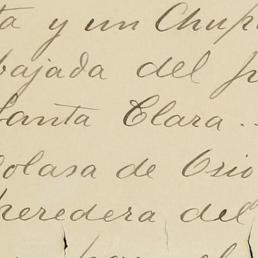 ta y un Chup
bajada del p
Santa Clara..
colasa de Osio
heredera del